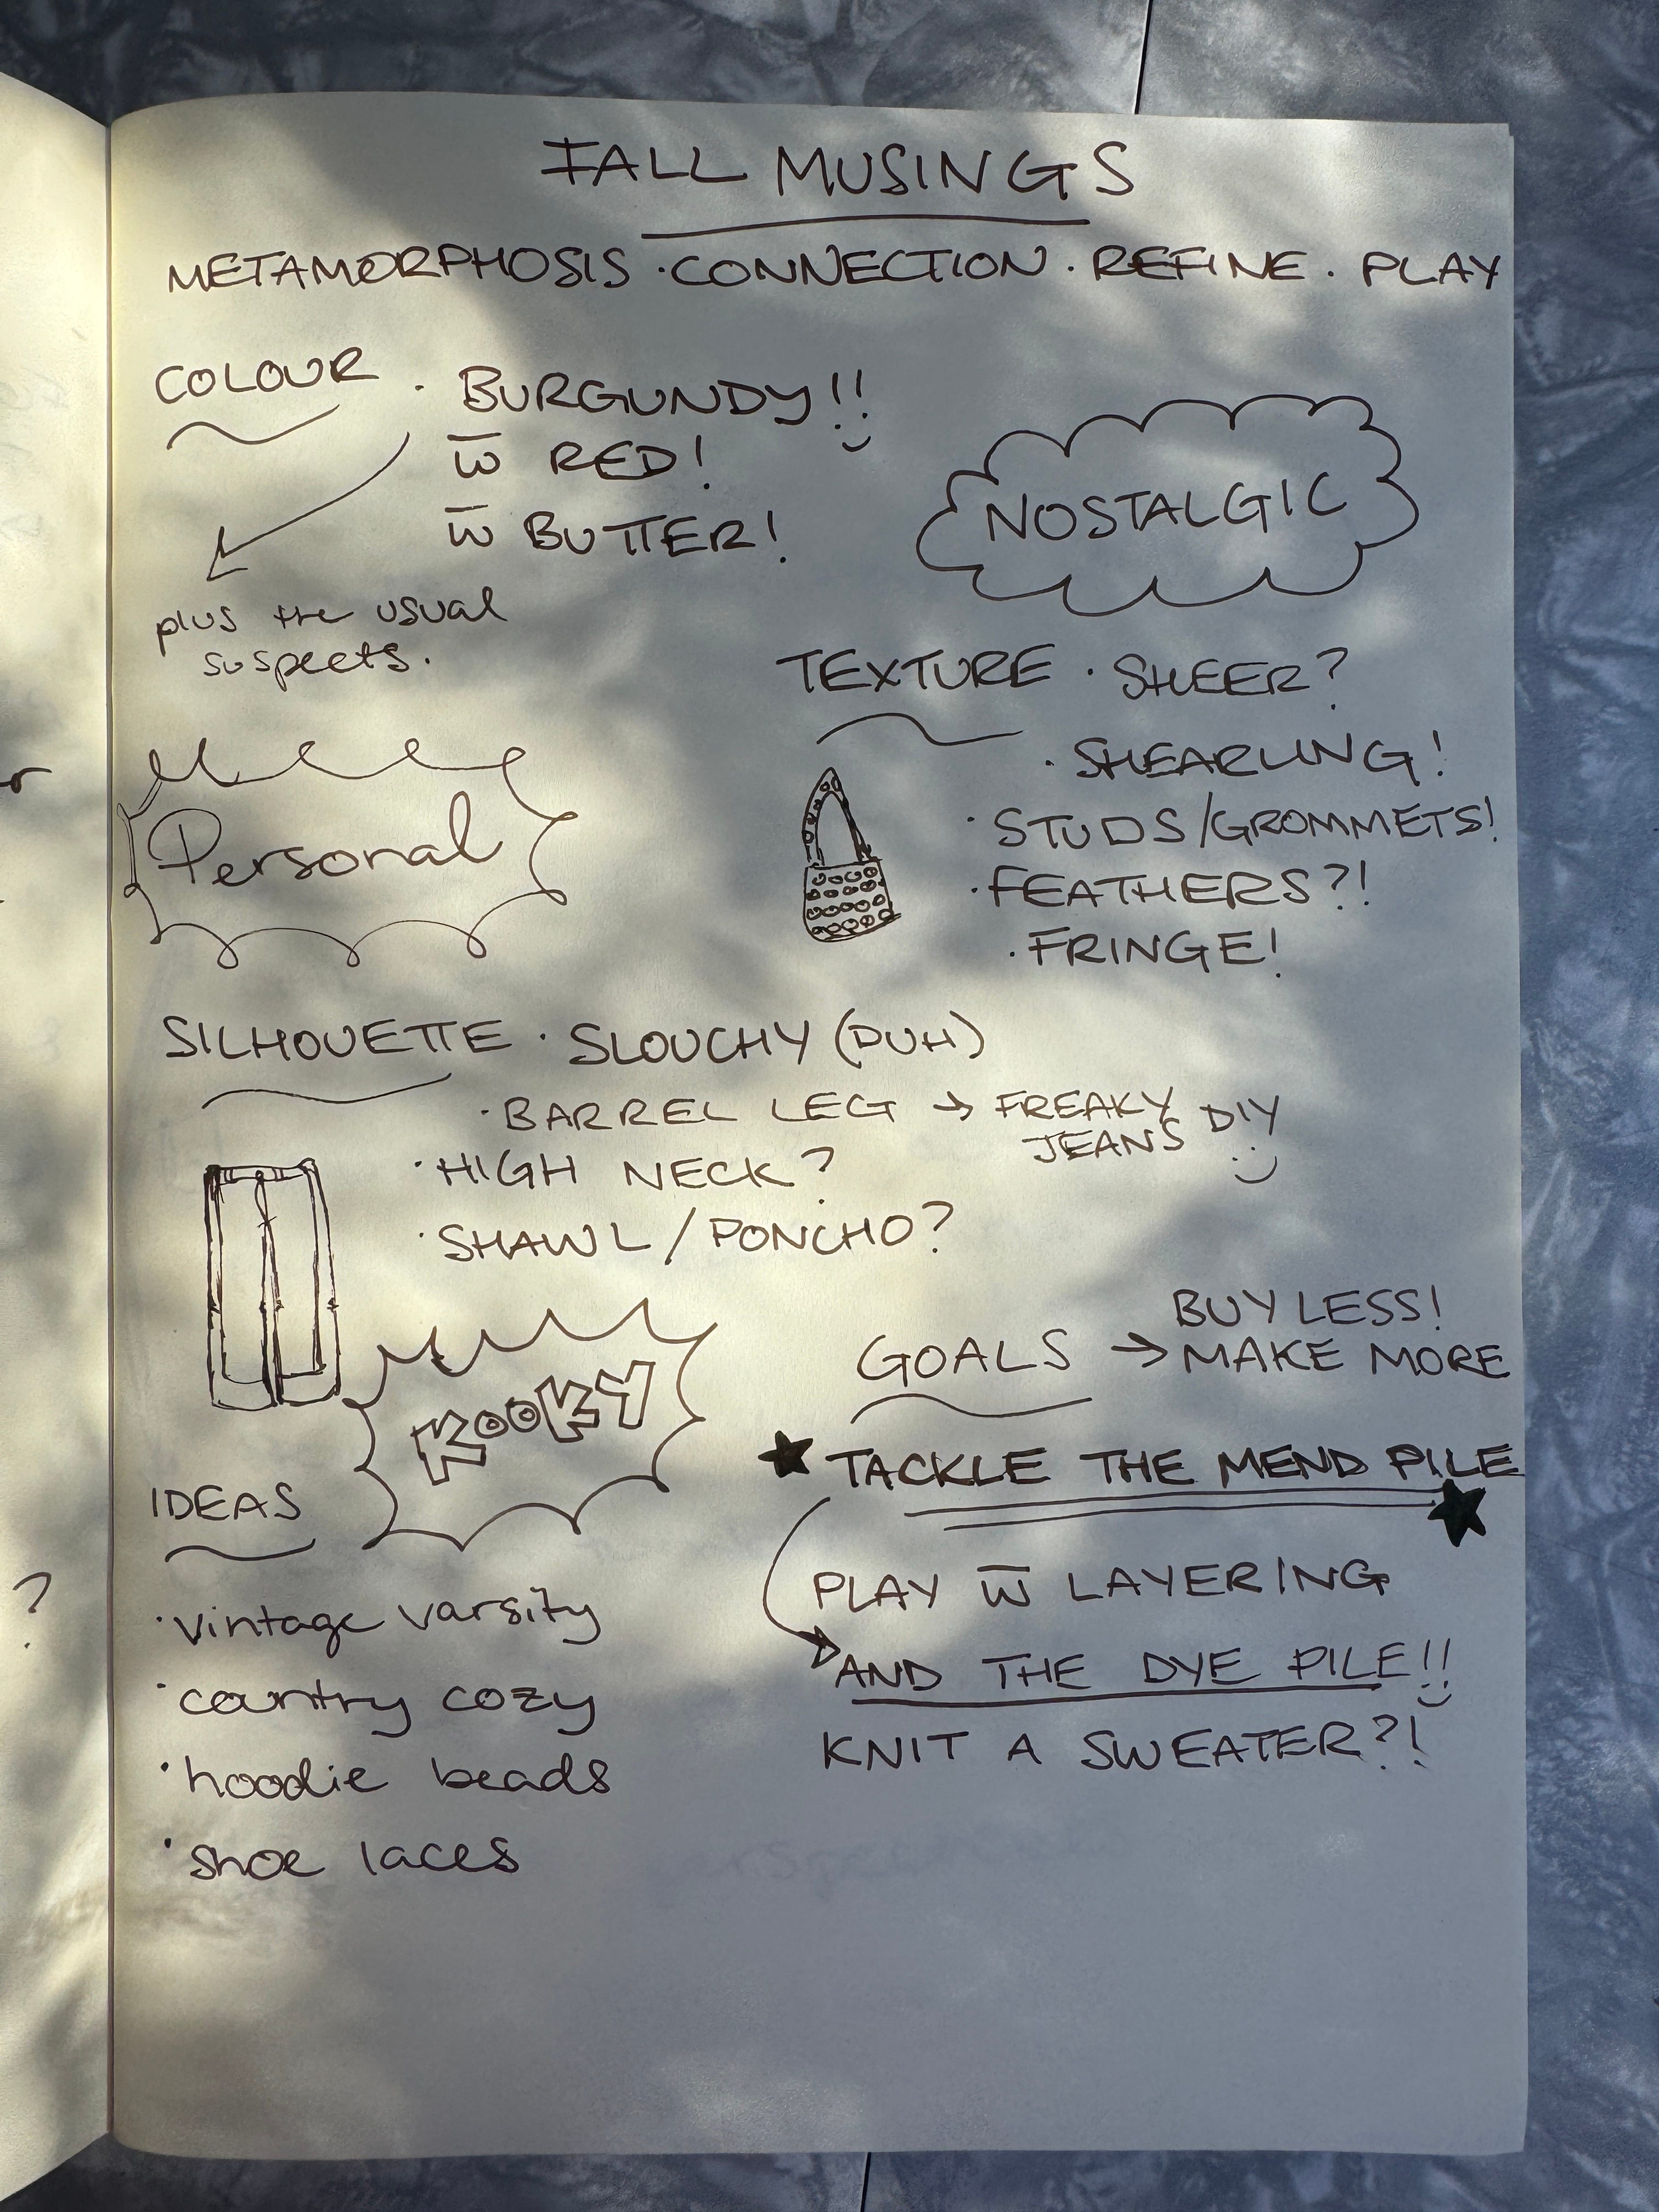 FALL MUSINGS
METAMORPHOSIS · CONNECTION · REFINE · PLAY
COLOUR · BURGUNDY!!
w̅ RED!
w̅ BUTTER!
plus the usual
suspects.
NOSTALGIC
TEXTURE · SHEER?
· SHEARLING!
· STUDS/GROMMETS!
· FEATHERS?!
· FRINGE!
Personal
SILHOUETTE · SLOUCHY (DUH)
· BARREL LEG → FREAKY JEANS DIY
· HIGH NECK?
· SHAWL/PONCHO?
KOOKY
GOALS → BUY LESS!
MAKE MORE
★ TACKLE THE MEND PILE ★
PLAY w̅ LAYERING
AND THE DYE PILE!!
KNIT A SWEATER?!
IDEAS
· vintage varsity
· country cozy
· hoodie beads
· shoe laces
?